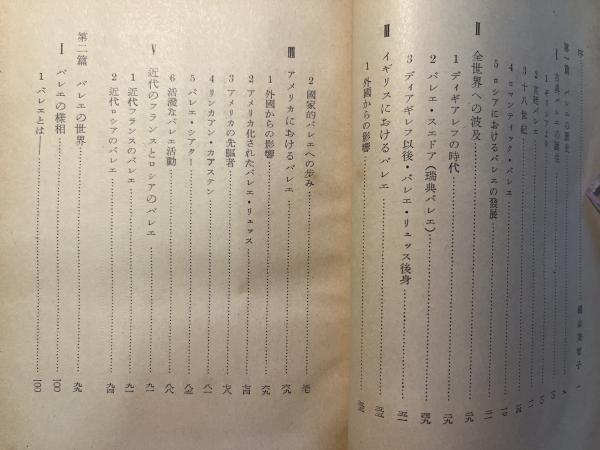 序
第一篇 バレエの歴史
Ⅰ 古典バレエの誕生
2 宮廷バレエ
3 十八世紀
4 ロマンティック・バレエ
5 ロシアにおけるバレエの發展
Ⅱ 全世界への波及
1 ディギアレフの時代 一九
2 バレエ・スエドア(瑞典バレエ)
3 ディアギレフ以後・バレエ・リュッス後身
Ⅲ イギリスにおけるバレエ
1 外國からの影響
2 國家的バレエへの歩み
Ⅲ アメリカにおけるバレエ 六九
1 外國からの影響 六九
2 アメリカ化されたバレエ・リュッス 七四
3 アメリカの先驅者 七八
4 リンカアン・カアステン 八一
5 バレエ・シアター 八三
6 活潑なバレエ活動 八八
Ⅴ 近代のフランスとロシアのバレエ 九一
1 近代フランスのバレエ 九一
2 近代ロシアのバレエ 九四
第二篇 バレエの世界 九九
Ⅰ バレエの樣相 一〇〇
1 バレエとは—— 一〇〇